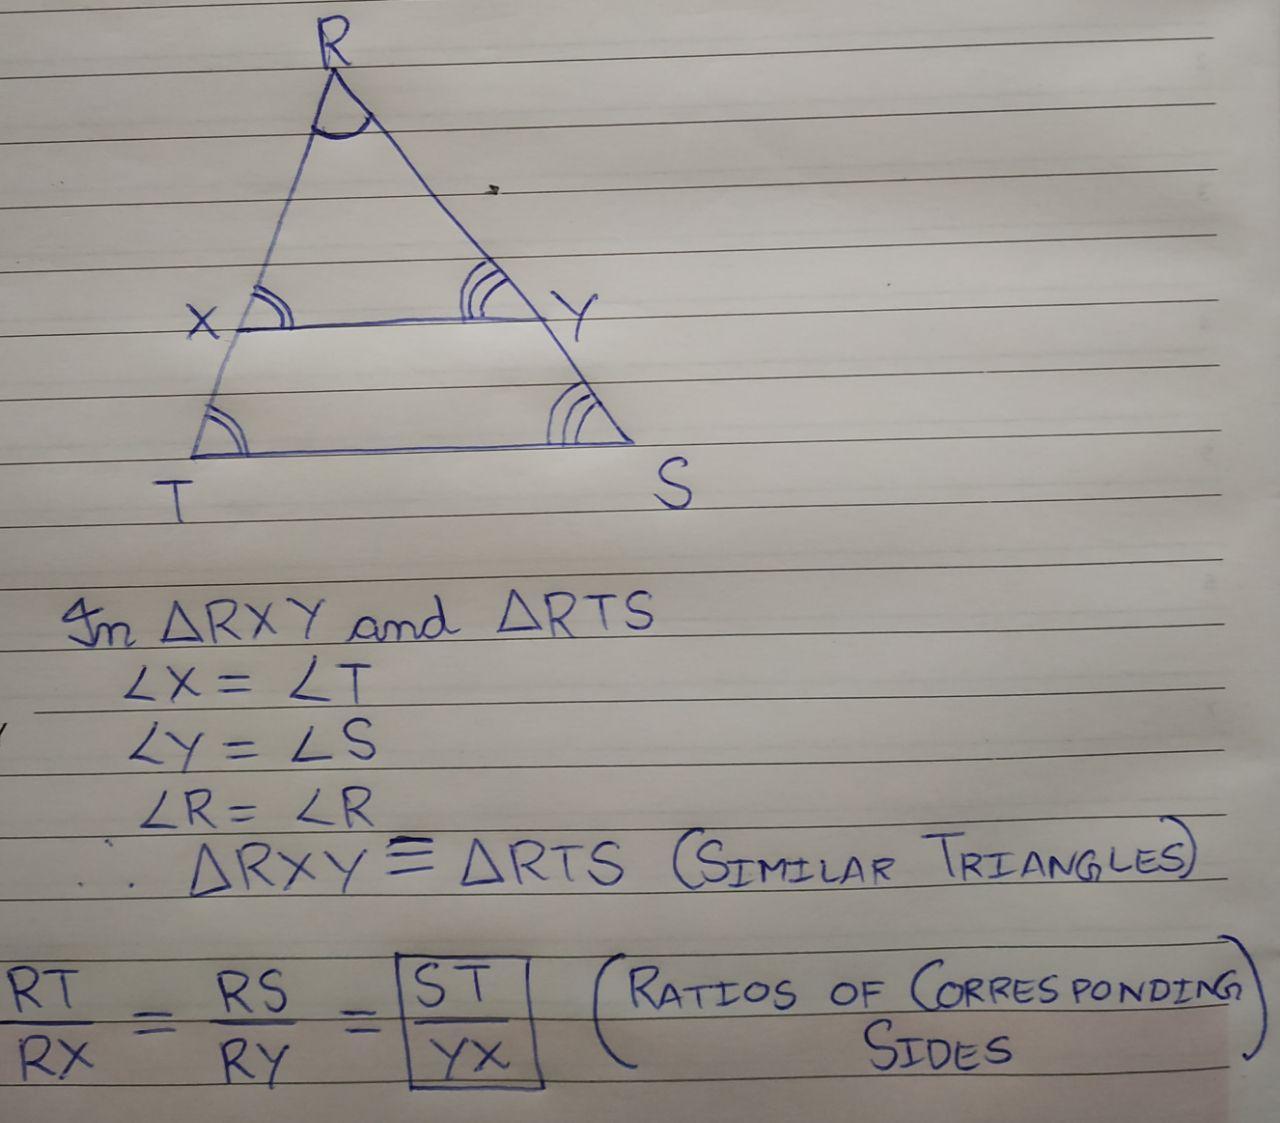 R
X
Y
T
S
In ΔRXY and ΔRTS
∠X = ∠T
∠Y = ∠S
∠R = ∠R
∴ ΔRXY ≡ ΔRTS (SIMILAR TRIANGLES)
RT/RX = RS/RY = ST/YX (RATIOS OF CORRESPONDING
SIDES)